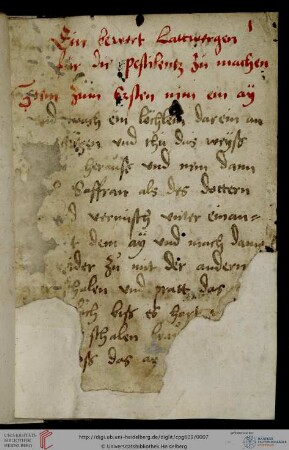 Ein bewert Lattwergen
für die pestilentz zu machen
zum zum Ersten nim ein ay
und mach ein lochlein darein an
spitzen und thu das weyß
herauß und nim dann
Saffran als des dottern
und vermisch unter einan-
dem ay und mach dam
wider zu mit der andern
schalen und pratt das
biß es hart
schalen
das ay
UNIVERSITÄTS-
BIBLIOTHEK
HEIDELBERG
http://digi.ub.uni-heidelberg.de/diglit/cpg622/0007
© Universitätsbibliothek Heidelberg